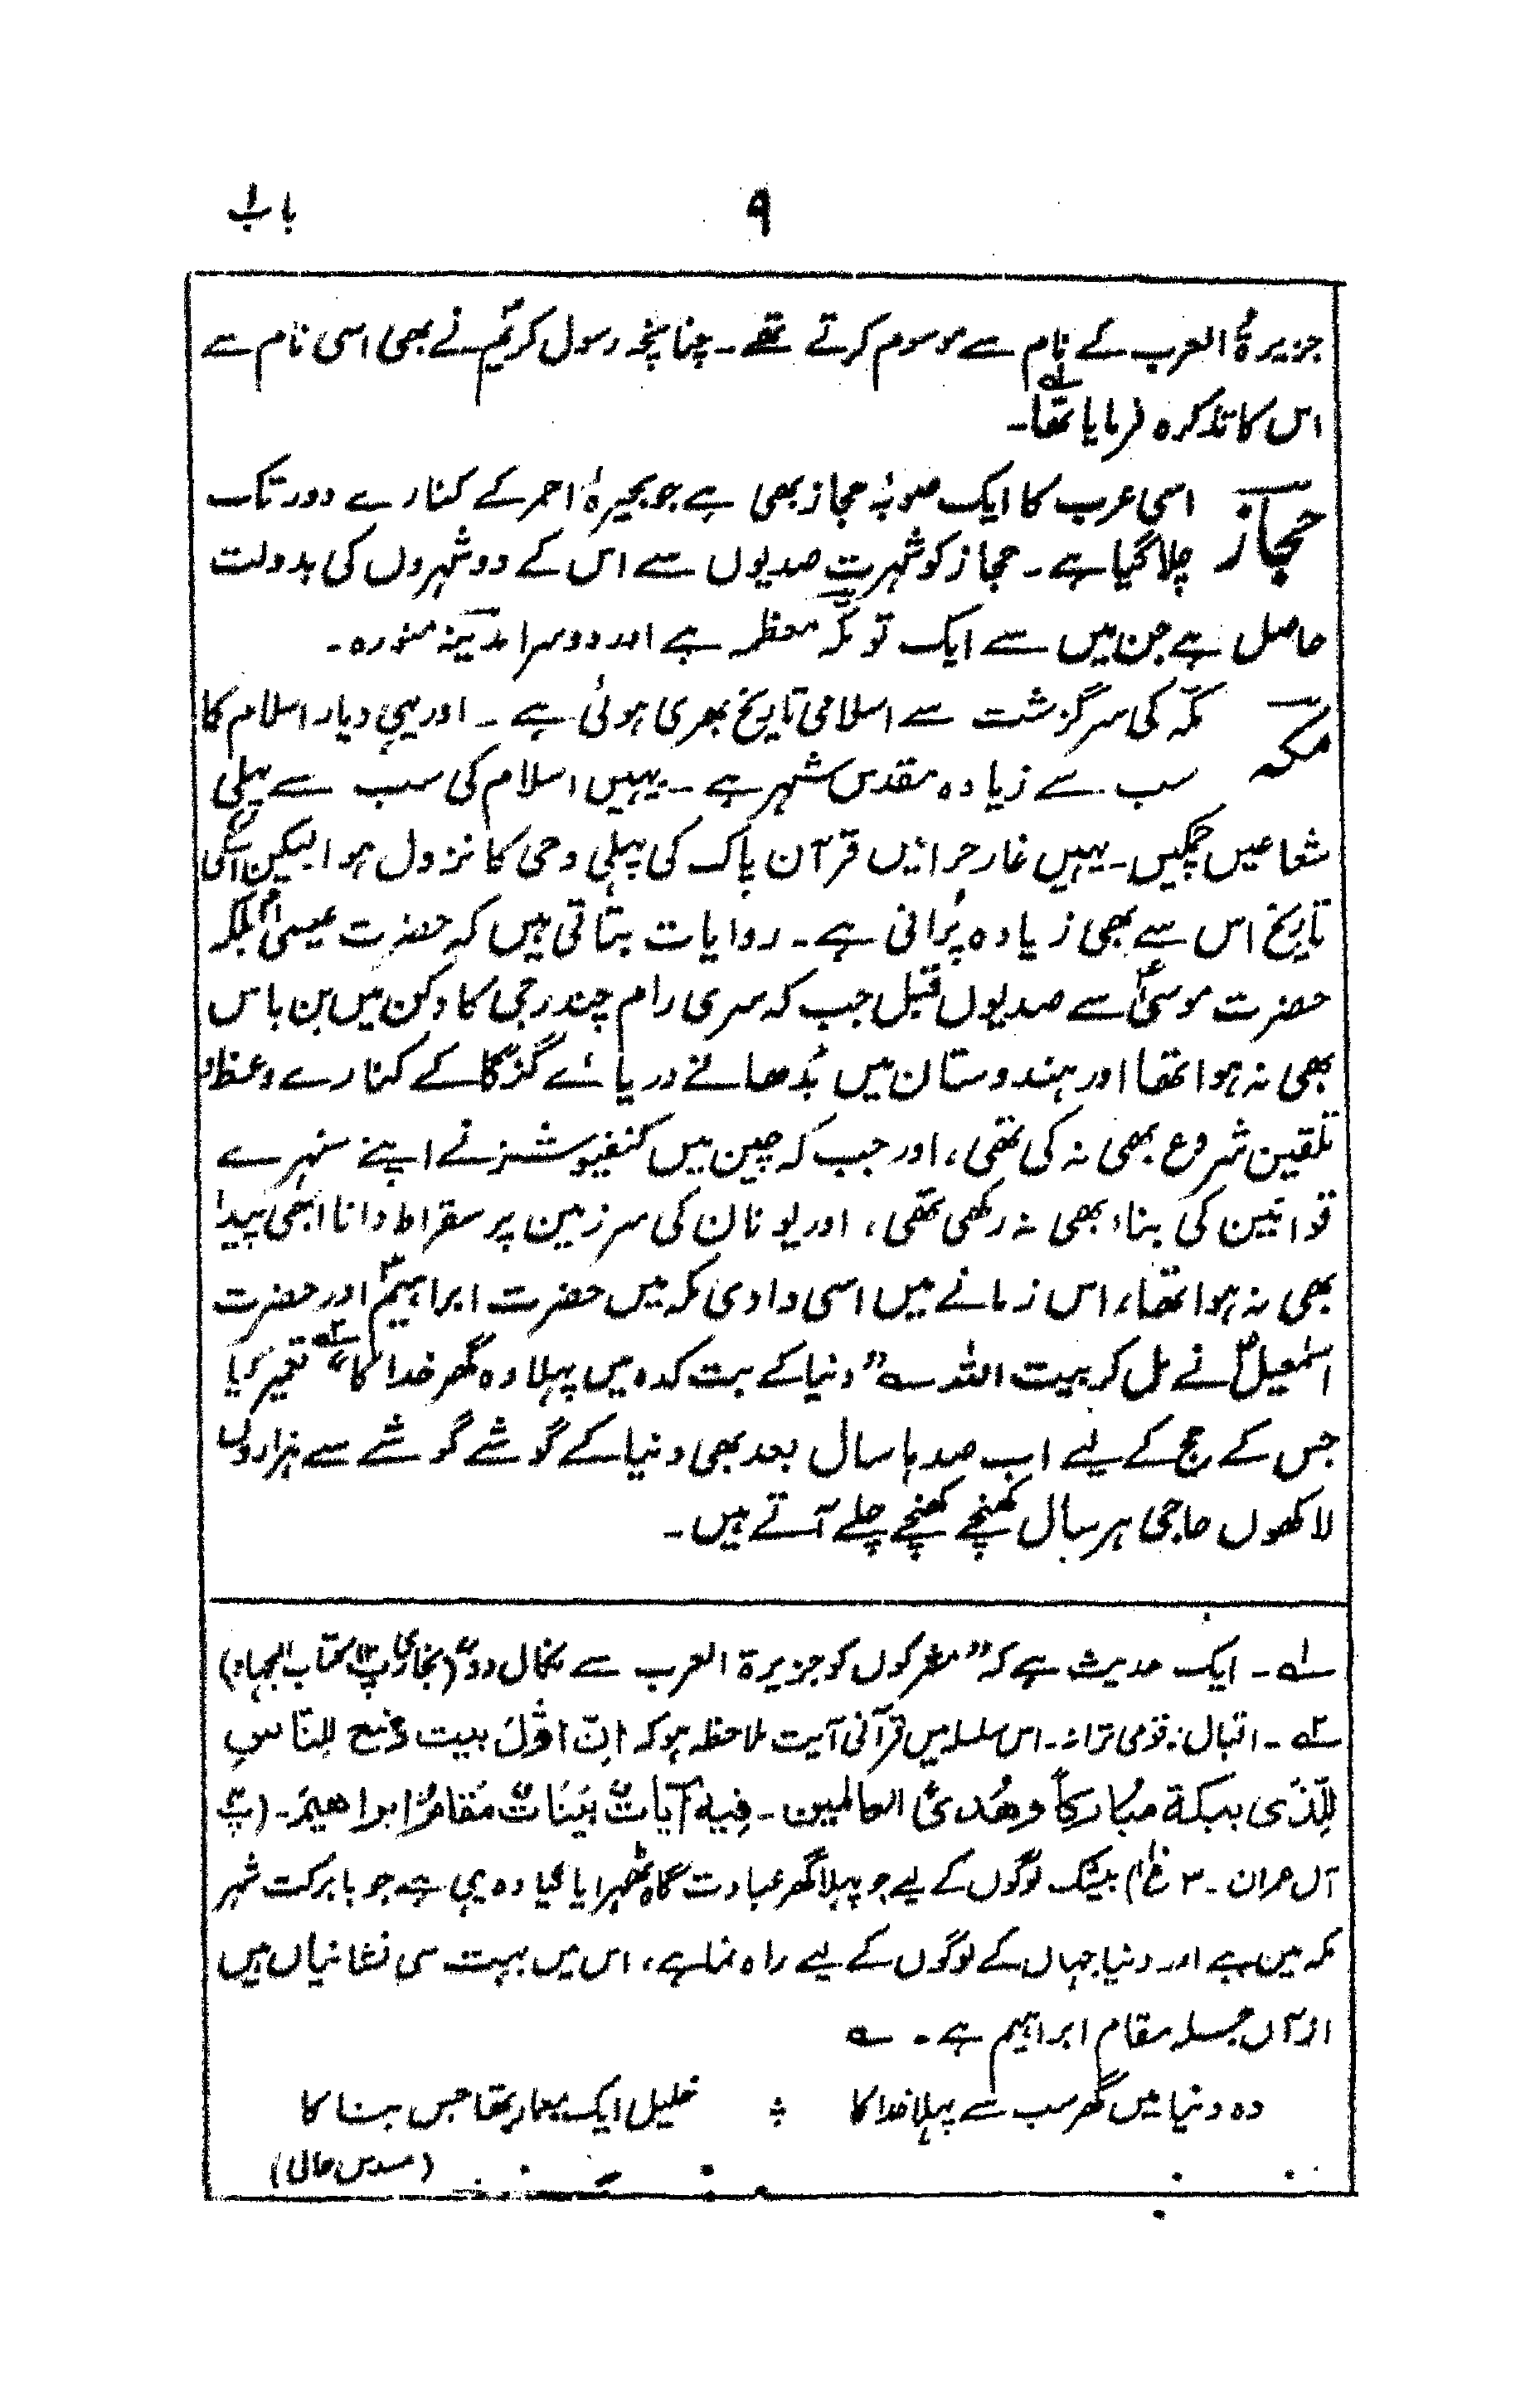 باب ۱
۹
جزیرۃُ العرب کے نام سے موسوم کرتے تھے۔ چنانچہ رسول کریمؐ نے بھی اسی نام سے
اس کا تذکرہ فرمایا تھا۔ ۱؎
حجاز
اسی عرب کا ایک صوبۂ حجاز بھی ہے جو بحیرۂ احمر کے کنارے دور تک
چلا گیا ہے۔ حجاز کو شہرت صدیوں سے اس کے دو شہروں کی بدولت
حاصل ہے جن میں سے ایک تو مکّہ معظمہ ہے اور دوسرا مدینہ منورہ۔
مکہ
مکّہ کی سرگزشت سے اسلامی تاریخ بھری ہوئی ہے۔ اور یہی دیار اسلام کا
سب سے زیادہ مقدس شہر ہے۔ یہیں اسلام کی سب سے پہلی
شعاعیں چمکیں۔ یہیں غار حرا میں قرآن پاک کی پہلی وحی کا نزول ہوا لیکن اس کی
تاریخ اس سے بھی زیادہ پُرانی ہے۔ روایات بتاتی ہیں کہ حضرت عیسیٰؑ بلکہ
حضرت موسیٰؑ سے صدیوں قبل جب کہ سری رام چندرجی کا دکن میں بن باس
بھی نہ ہوا تھا اور ہندوستان میں بُدھا نے دریائے گنگا کے کنارے وعظ و
تلقین شروع بھی نہ کی تھی، اور جب کہ چین میں کنفیوشنز نے اپنے سنہرے
قوانین کی بناء بھی نہ رکھی تھی، اور یونان کی سرزمین پر سقراط دانا ابھی پیدا
بھی نہ ہوا تھا، اس زمانے میں اسی وادی مکہ میں حضرت ابراہیمؑ اور حضرت
اسمٰعیلؑ نے مل کر بیت اللہ ؎ ”دنیا کے بت کدہ میں پہلا وہ گھر خدا کا“ ۲؎ تعمیر کیا
جس کے حج کے لیے اب صدہا سال بعد بھی دنیا کے گوشے گوشے سے ہزاروں
لاکھوں حاجی ہر سال کھنچے کھنچے چلے آتے ہیں۔
۱؎ ۔ ایک حدیث ہے کہ ”مشرکوں کو جزیرۃ العرب سے نکال دو“ (بخاری پ۱۲ کتاب الجہاد)
۲؎ ۔ اقبال: قومی ترانہ۔ اس سلسلہ میں قرآنی آیت ملاحظہ ہو کہ اِنّ اوّلَ بیت وُضع للنّاسِ
للّذی ببکۃ مبارکاً وھُدیً العالمین۔ فِیہ آیاتٌ بَیّنَاتٌ مَقامُ ابراھیم۔ (پ۴
آل عمران۔ ۳ ع۱) بیشک لوگوں کے لیے جو پہلا گھر عبادت گاہ ٹھہرایا گیا وہ یہی ہے جو بابرکت شہر
مکہ میں ہے اور دنیا جہاں کے لوگوں کے لیے راہ نما ہے، اس میں بہت سی نشانیاں ہیں
از آں جملہ مقام ابراہیم ہے۔ ؎
وہ دنیا میں گھر سب سے پہلا خدا کا ؛ خلیل ایک معمار تھا جس بنا کا
(مسدس حالی)